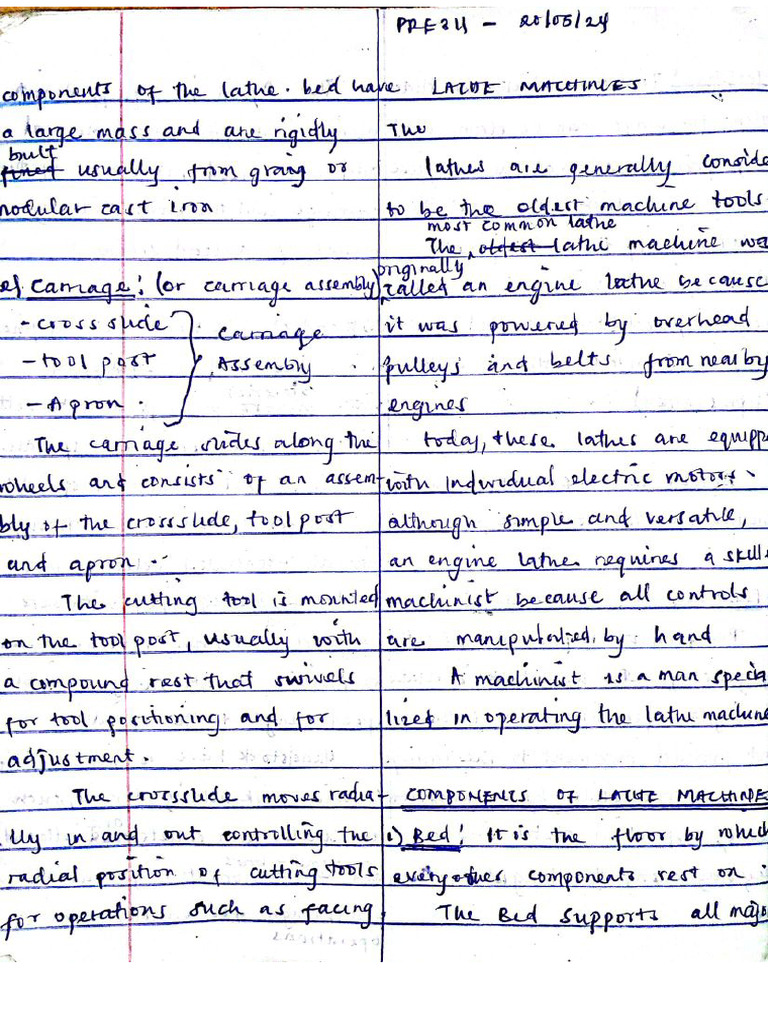 PRE311 - 20/05/24
LATHE MACHINES
The
lathes are generally conside
to be the oldest machine tools
most common lathe
The oldest lathe machine wa
originally
called an engine lathe because
it was powered by overhead
pulleys and belts from nearby
engines
today, these lathes are equipp
with individual electric motors.
although simple and versatile,
an engine lathe requires a skill
machinist because all controls
are by hand
A machinist is a man specia
lized in operating the lathe machine
COMPONENTS OF LATHE MACHINE
i) Bed: It is the floor by which
every other components rest on.
The Bed supports all majo
components of the lathe. bed have
a large mass and are rigidly
built
usually from or
nodular cast iron
Carriage: (or carriage assembly)
- cross slide
- tool post
- Apron.
Carriage
Assembly
The carriage slides along the
wheels and consists of an assem-
bly of the crossslide, tool post
and apron.
The cutting tool is mounted
on the tool post, usually with
a compound rest that swivels
for tool positioning and for
adjustment.
The crossslide moves radia-
lly in and out controlling the
radial position of cutting tools
for operations such as facing.